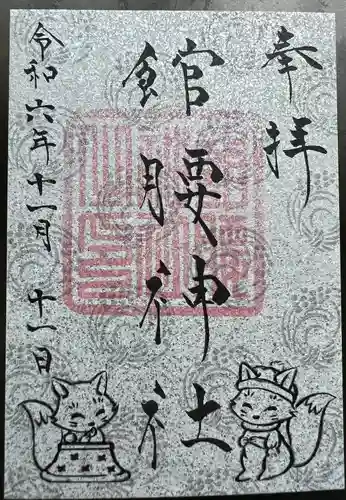 奉拝
館腰神社
令和六年十一月十一日